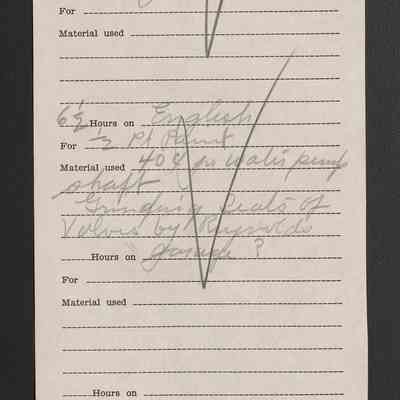 For
Material used
6½ Hours on English
For ½ Pt Paint
Material used 40¢ on water pump
shaft
Grinding Seats of
Valves by Reynolds
Hours on garage ?
For
Material used
Hours on